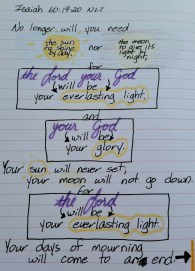 Isaiah 60:19-20 NLT
No longer will you need
the sun to shine by day, nor the moon to give its light by night,
for
the Lord your God
will be
your everlasting light,
and
your God
will be
your glory.
Your sun will never set;
your moon will not go down.
For
the Lord
will be
your everlasting light.
Your days of mourning
will come to an end